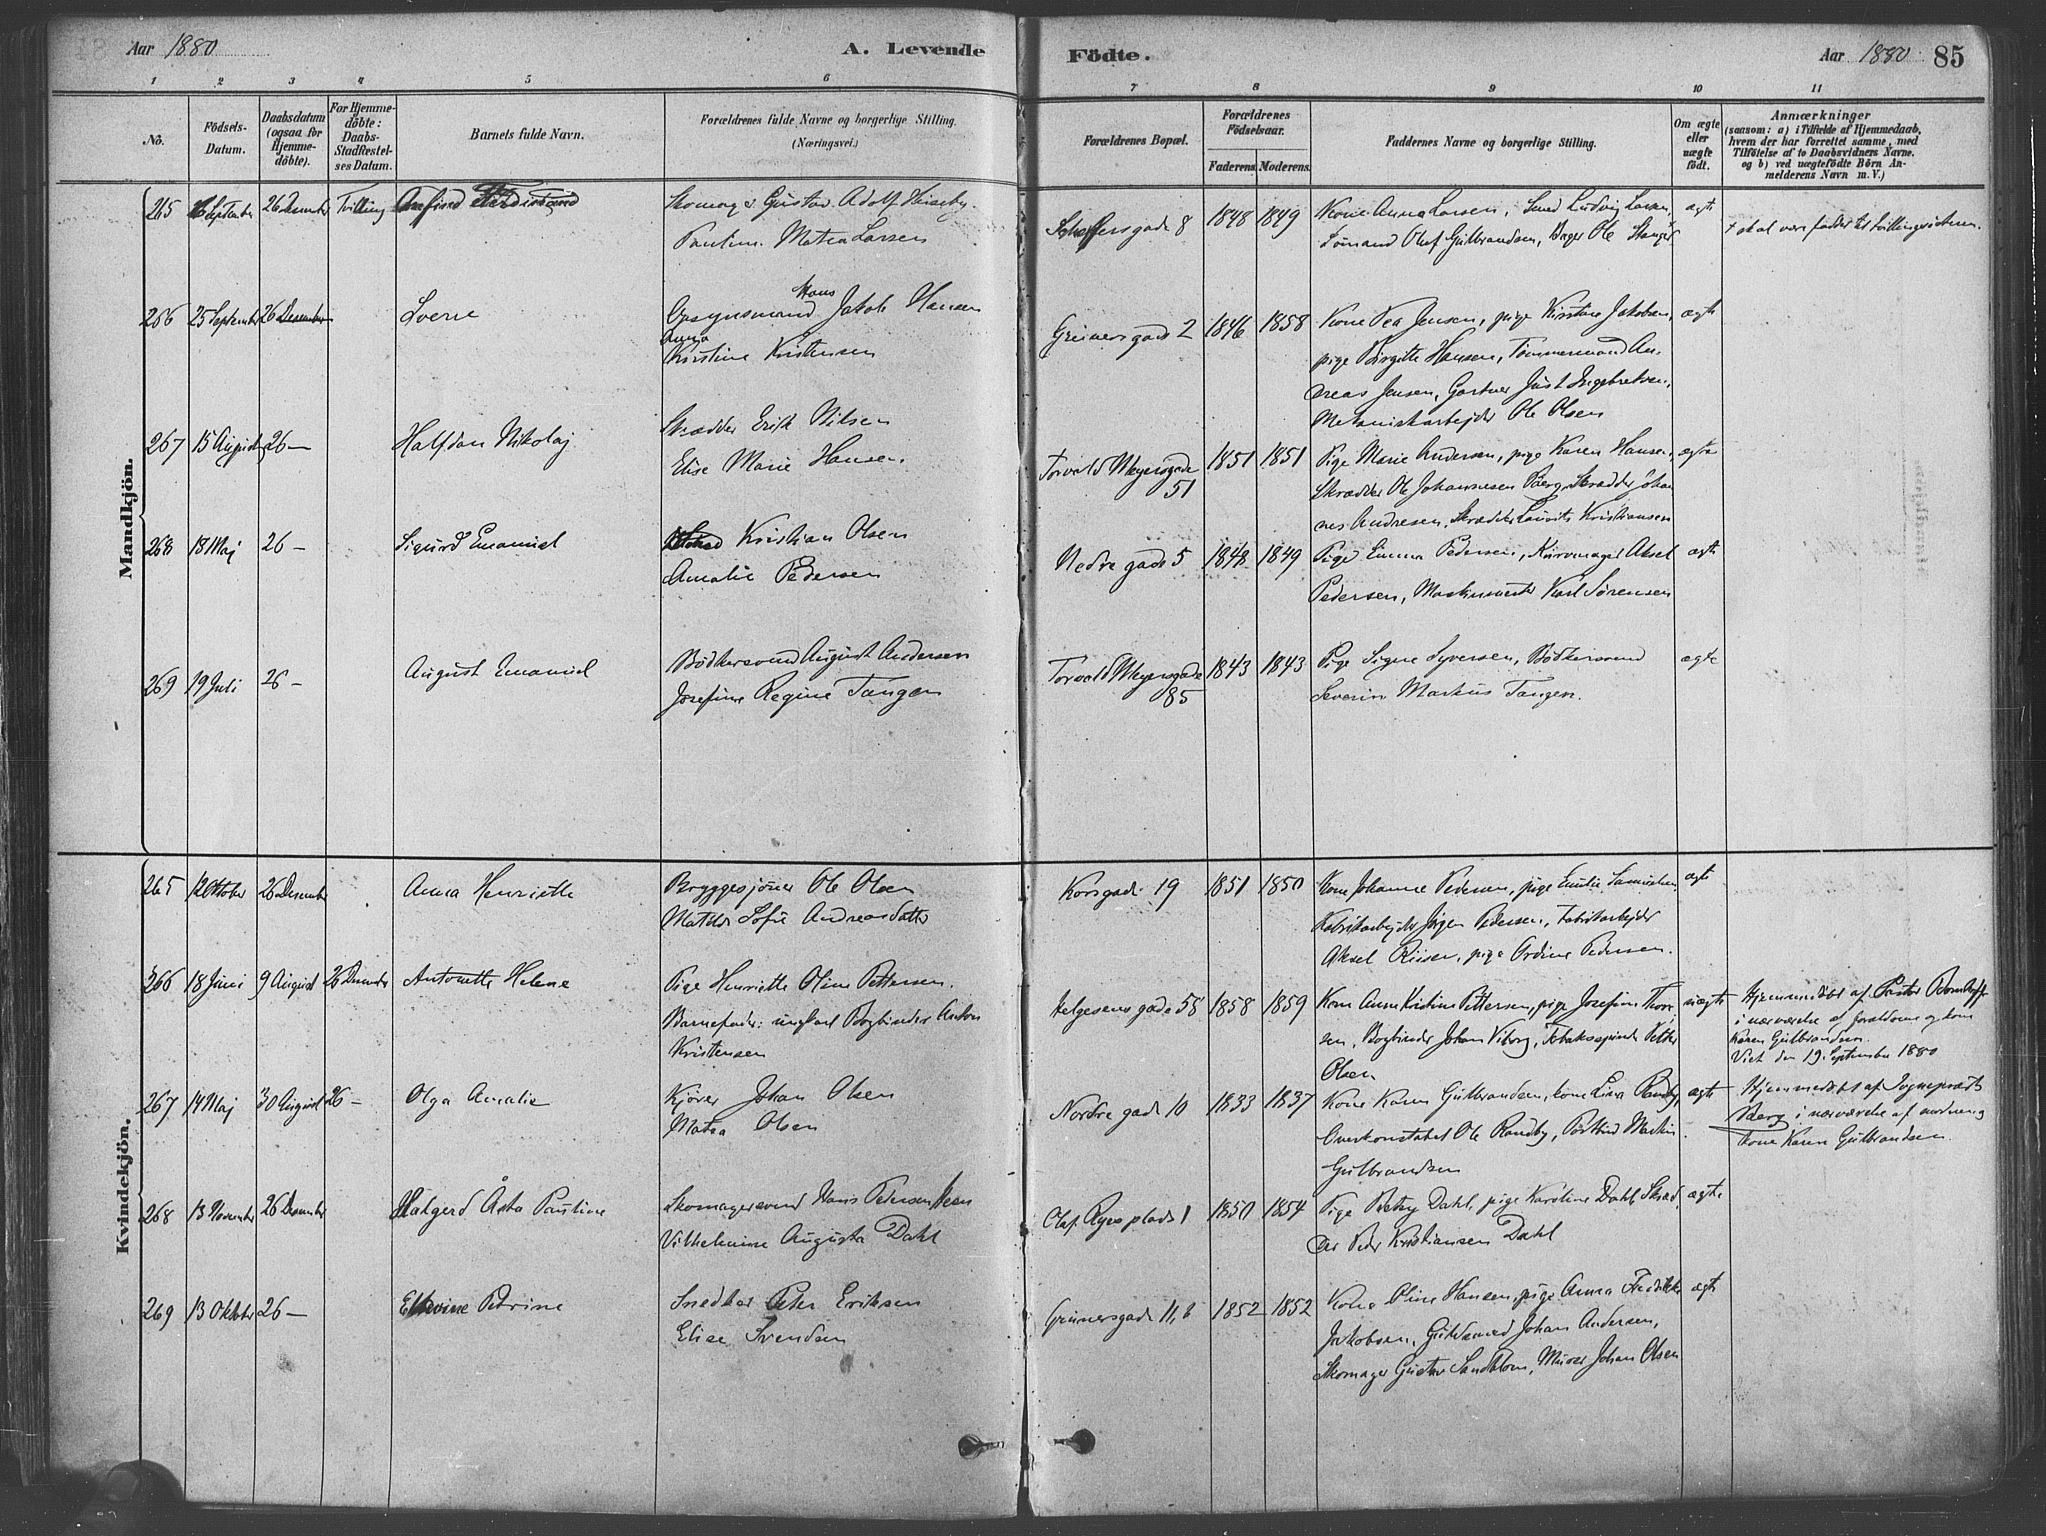 Aar 1880
A. Levende
Födte.
Aar 1880
85
1 2 3 4 5 6 7 8 9 10 11
No.
Födsels-
Datum.
Daabsdatum
(ogsaa for
Hjemme-
döbte).
For Hjemme-
döbte:
Daabs-
Stadfæstel-
ses Datum.
Barnets fulde Navn.
Forældrenes fulde Navne og borgerlige Stilling.
(Næringsvei.)
Forældrenes Bopæl.
Forældrenes
Födselsaar.
Faderens. Moderens.
Faddernes Navne og borgerlige Stilling.
Om ægte
eller
uægte
födt.
Anmærkninger
(saasom: a) i Tilfælde af Hjemmedaab,
hvem der har forrettet samme, med
Tilföielse af to Daabsvidners Navne.
og b) ved uægtefödte Börn An-
melderens Navn m. V.)
Mandkjön.
265 16 September 26 Desember Tvilling Anfind Ferdinand
Skomager Gustav Adolf
Pauline Matea Larsen
Schleffersgade 8 1848 1849
Kone Anna Larsen, Smed Ludvig Larsen,
Sømand Oluf Gulbrandsen, Bager Ole Stanger
ægte
+ skal være fadder til tvillingsøsteren.
266 25 September 26 Desember Sverre
Opsynsmand Hans Jakob Hansen
Anna
Kirstine Kristensen
Grünersgade 2 1846 1858
Kone Pea Jensen, pige Kirstine Jakobsen,
pige Birgitte Hansen, Tømmermand An-
dreas Jensen, Gartner Just Ingebretsen,
Mekaniskarbejder Ole Olsen
ægte
267 15 August 26 — Halfdan Nikolaj
Skrædder Erik Nilsen
Elise Marie Hansen
Torvald Meyersgade
51
1851 1851
Pige Marie Andersen, pige Karen Hansen,
Skrædder Ole Johannesen Berg, Skrædder Johan
nes Andresen, Skrædder Laurits Kristiansen
ægte
268 18 Maj 26 — Sigurd Emanuel
Kristian Olsen
Amalie Pedersen
Nedre gade 5 1848 1849
Pige Emma Pedersen, Kurvmager Aksel
Pedersen, Maskinmester Karl Sørensen
ægte
269 19 Juli 26 — August Emanuel
Bødkersvend August Andersen
Josefine Regine Tangen
Torvald Meyersgade
85
1843 1843
Pige Signe Syversen, Bødkersvend
Severin Markus Tangen.
ægte
Kvindekjön.
265 12 Oktober 26 Desember Anna Henriette
Bryggesjouer Ole Olsen
Matilde Sofie Andreasdatter
Korsgade 19 1851 1850
Kone Johanne Pedersen, pige Emilie
Fabrikarbejder Jørgen Pedersen, Fabrikarbejder
Aksel Riiser, pige Ordine Pedersen.
ægte
266 18 Juni 9 August 26 Desember Antonette Helene
Pige Henriette Oline Pettersen.
Barnefader: ungkarl Bogbinder Anton
Kristensen
Helgesensgade 58 1858 1859
Kone Anne Kristine Pettersen, pige Josefine Thor-
sen, Bogbinder Johan Viborg, Tobaksspinder Petter
Olsen
uægte
Hjemmedøbt af Pastor
i nærværelse af forældrene og kone
Karen Gulbrandsen.
Viet den 19. September 1880
267 14 Maj 30 August 26 — Olga Amalie
Kjører Johan Olsen
Matea Olsen
Nordre gade 10 1833 1837
Kone Karen Gulbrandsen, kone Lina Randby,
Overkonstabel Ole Randby, Postbud Martin
Gulbrandsen
ægte
Hjemmedøbt af Sogneprest
Berg i nærværelse af moderen og
kone Karen Gulbrandsen.
268 13 November 26 Desember Halgerd Åsta Pauline
Skomagersvend Hans Pedersen Moen
Vilhelmine Augusta Dahl
Olaf Ryes plads 1 1850 1854
Pige Betsy Dahl, pige Karstine Dahl, Skræd-
der Peder Kristiansen Dahl
ægte
269 13 Oktober 26 — Petrine
Snedker Peter Eriksen
Elise Svendsen
Grünersgade 11, b 1852 1852
Kone Oline Hansen, pige Anna Fredrikke
Jakobsen, Guldsmed Johan Andersen,
Skomager Gustav Sandblom, Murer Johan Olsen
ægte